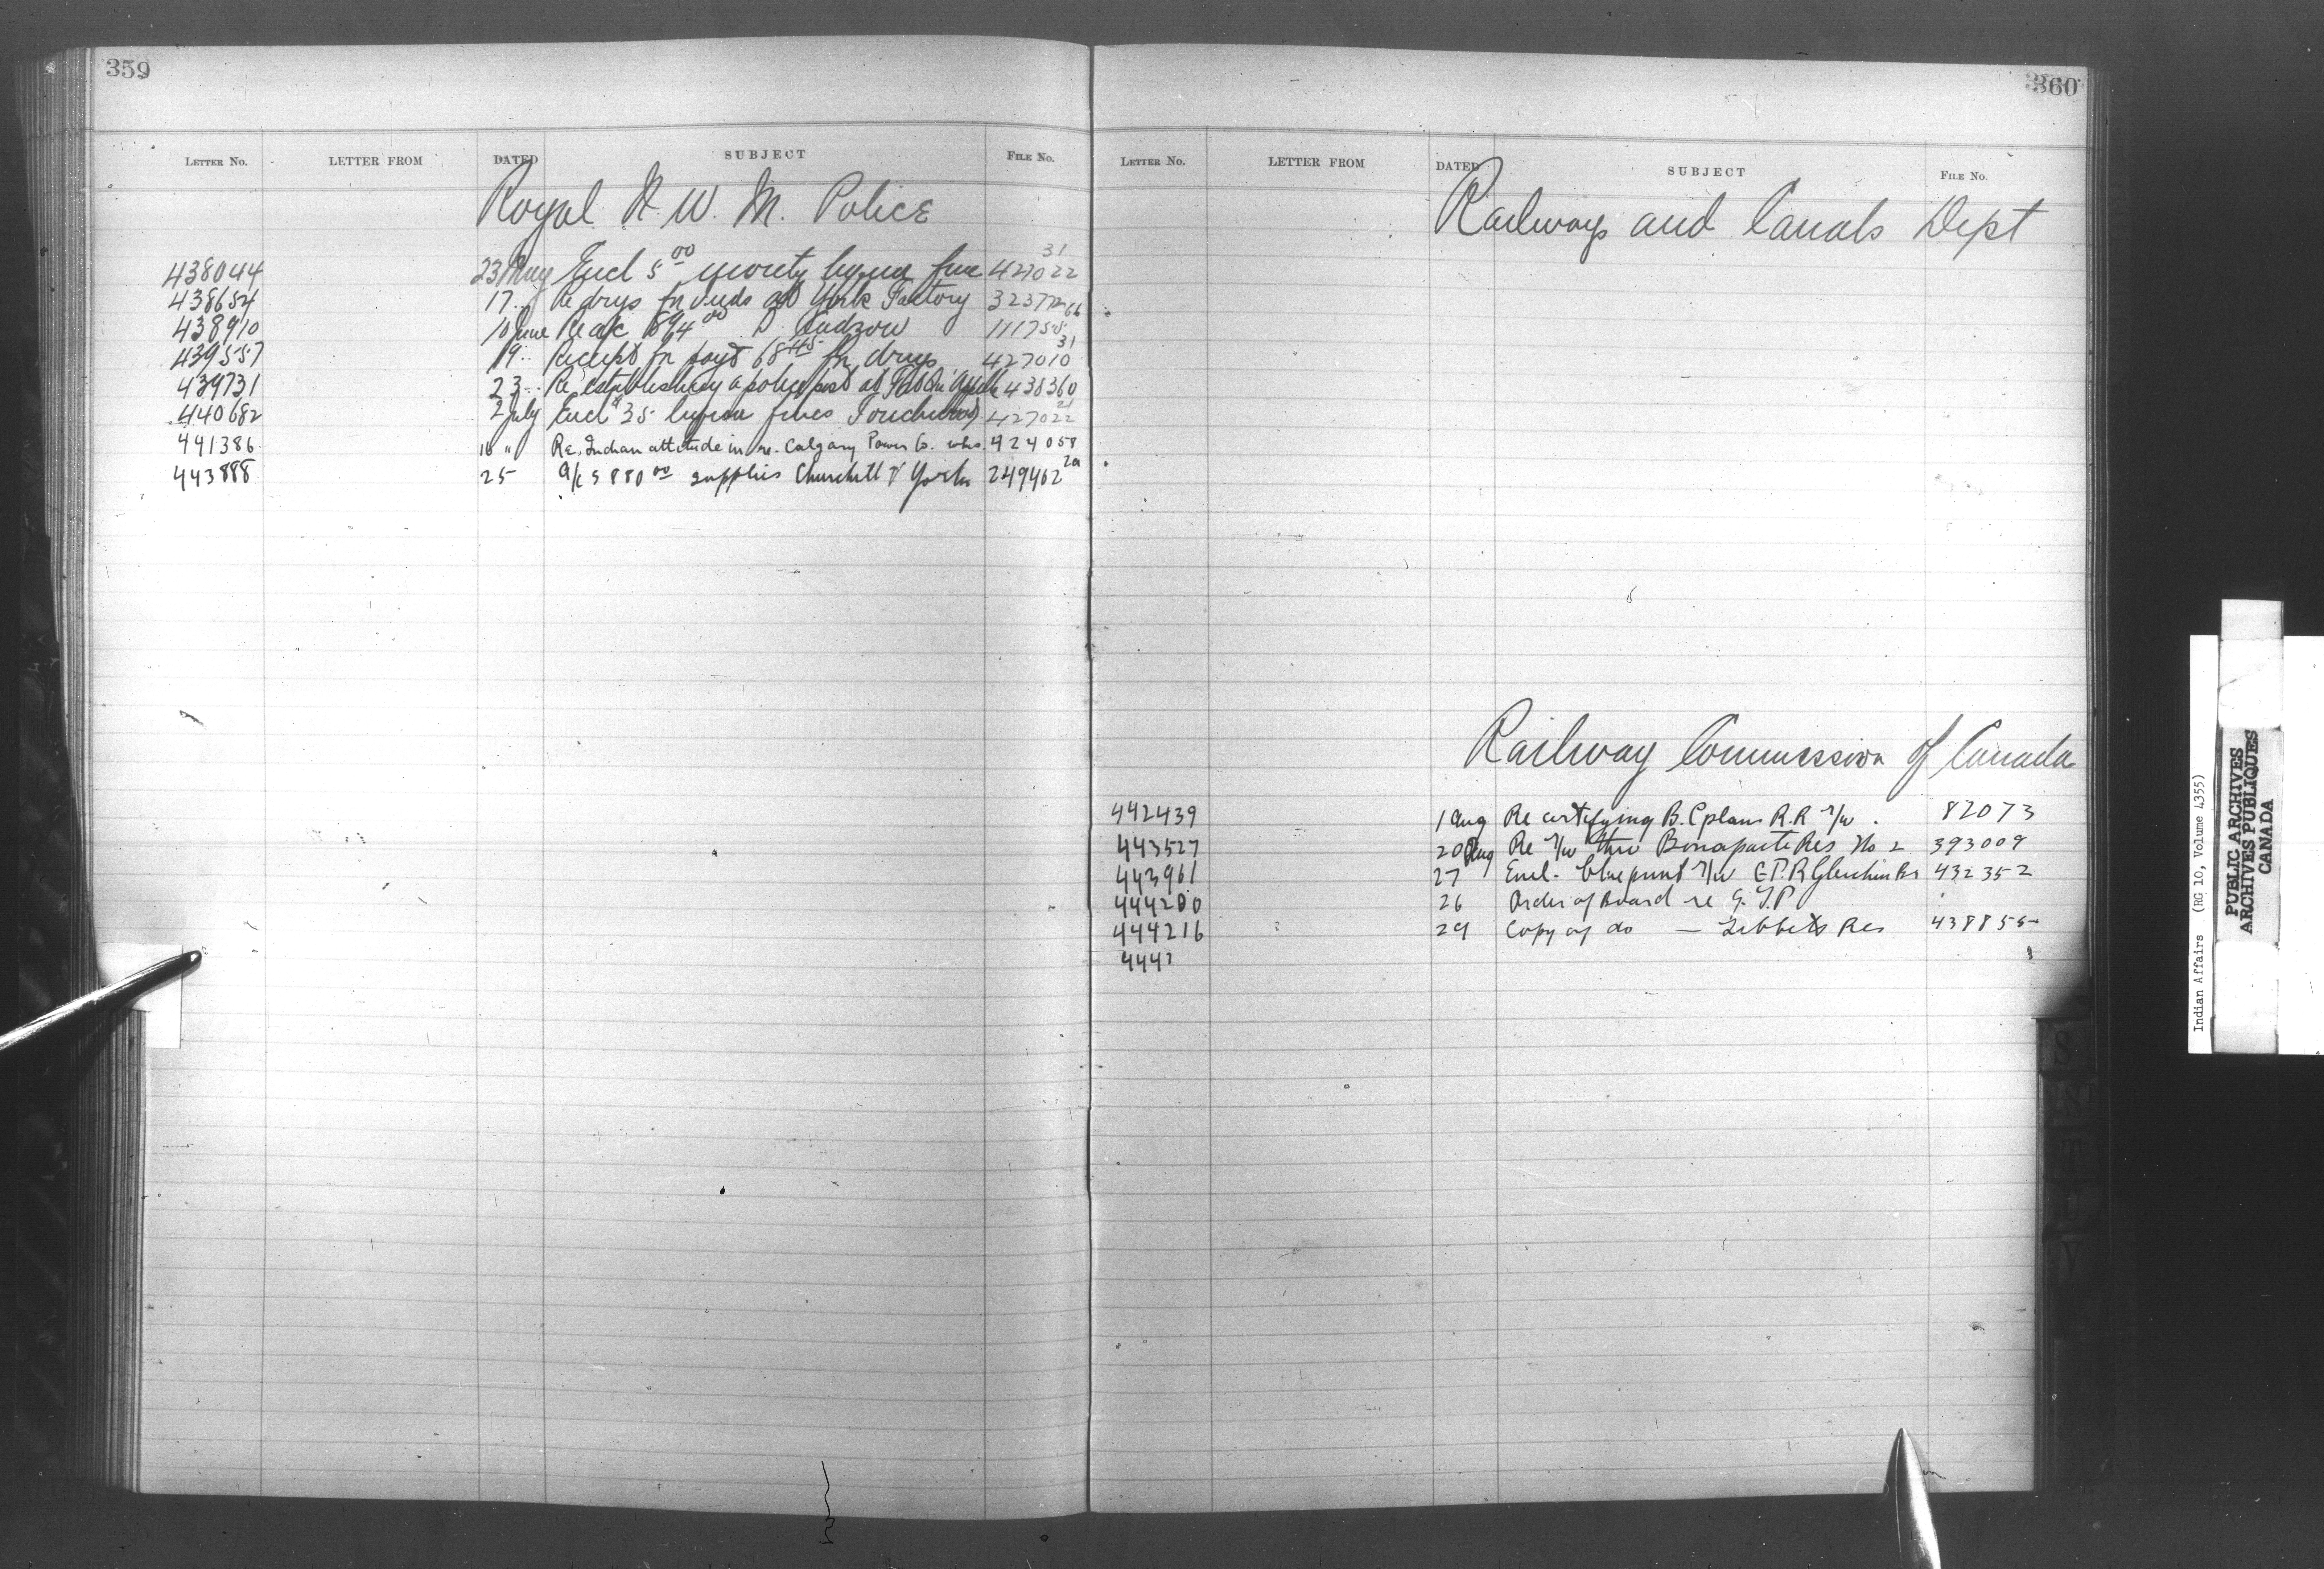 359
LETTER No. LETTER FROM DATED SUBJECT FILE No.
Royal N. W. M. Police
438044 23 May Encl 5 00 moiety liquor fine 427022 31
438654 17 " Re drugs for Inds at York Factory
438910 10 June Re a/c 111755
439557 19 " receipt for payt 68 45 for drugs 427010 31
439731 23 " Re establishing a police post at Fort Qu'Appelle 438360
440682 2 July Encl $35 liquor fines Touchwood 427022 21
441386 16 " Re. Indian attitude in re. Calgary Power Co. 424058
443888 25 a/c 5880 00 supplies Churchill & York 249462 2a
360
LETTER No. LETTER FROM DATED SUBJECT FILE No.
Railways and Canals Dept
Railway Commission of Canada
442439 1 Aug Re certifying B.C plans R.R r/w . 82073
443527 20 Aug Re r/w thro Bonaparte Res No 2 393009
443961 27 Encl. blueprint r/w C.P.R Gleichen Br 432352
444200 26 Order of Board re G.T.P "
444216 29 Copy of do — Res 438855
444?
Indian Affairs (RG 10, Volume 4355)
PUBLIC ARCHIVES
ARCHIVES PUBLIQUES
CANADA
S
S
T
U
V